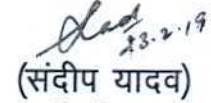 23.2.19
(संदीप यादव)